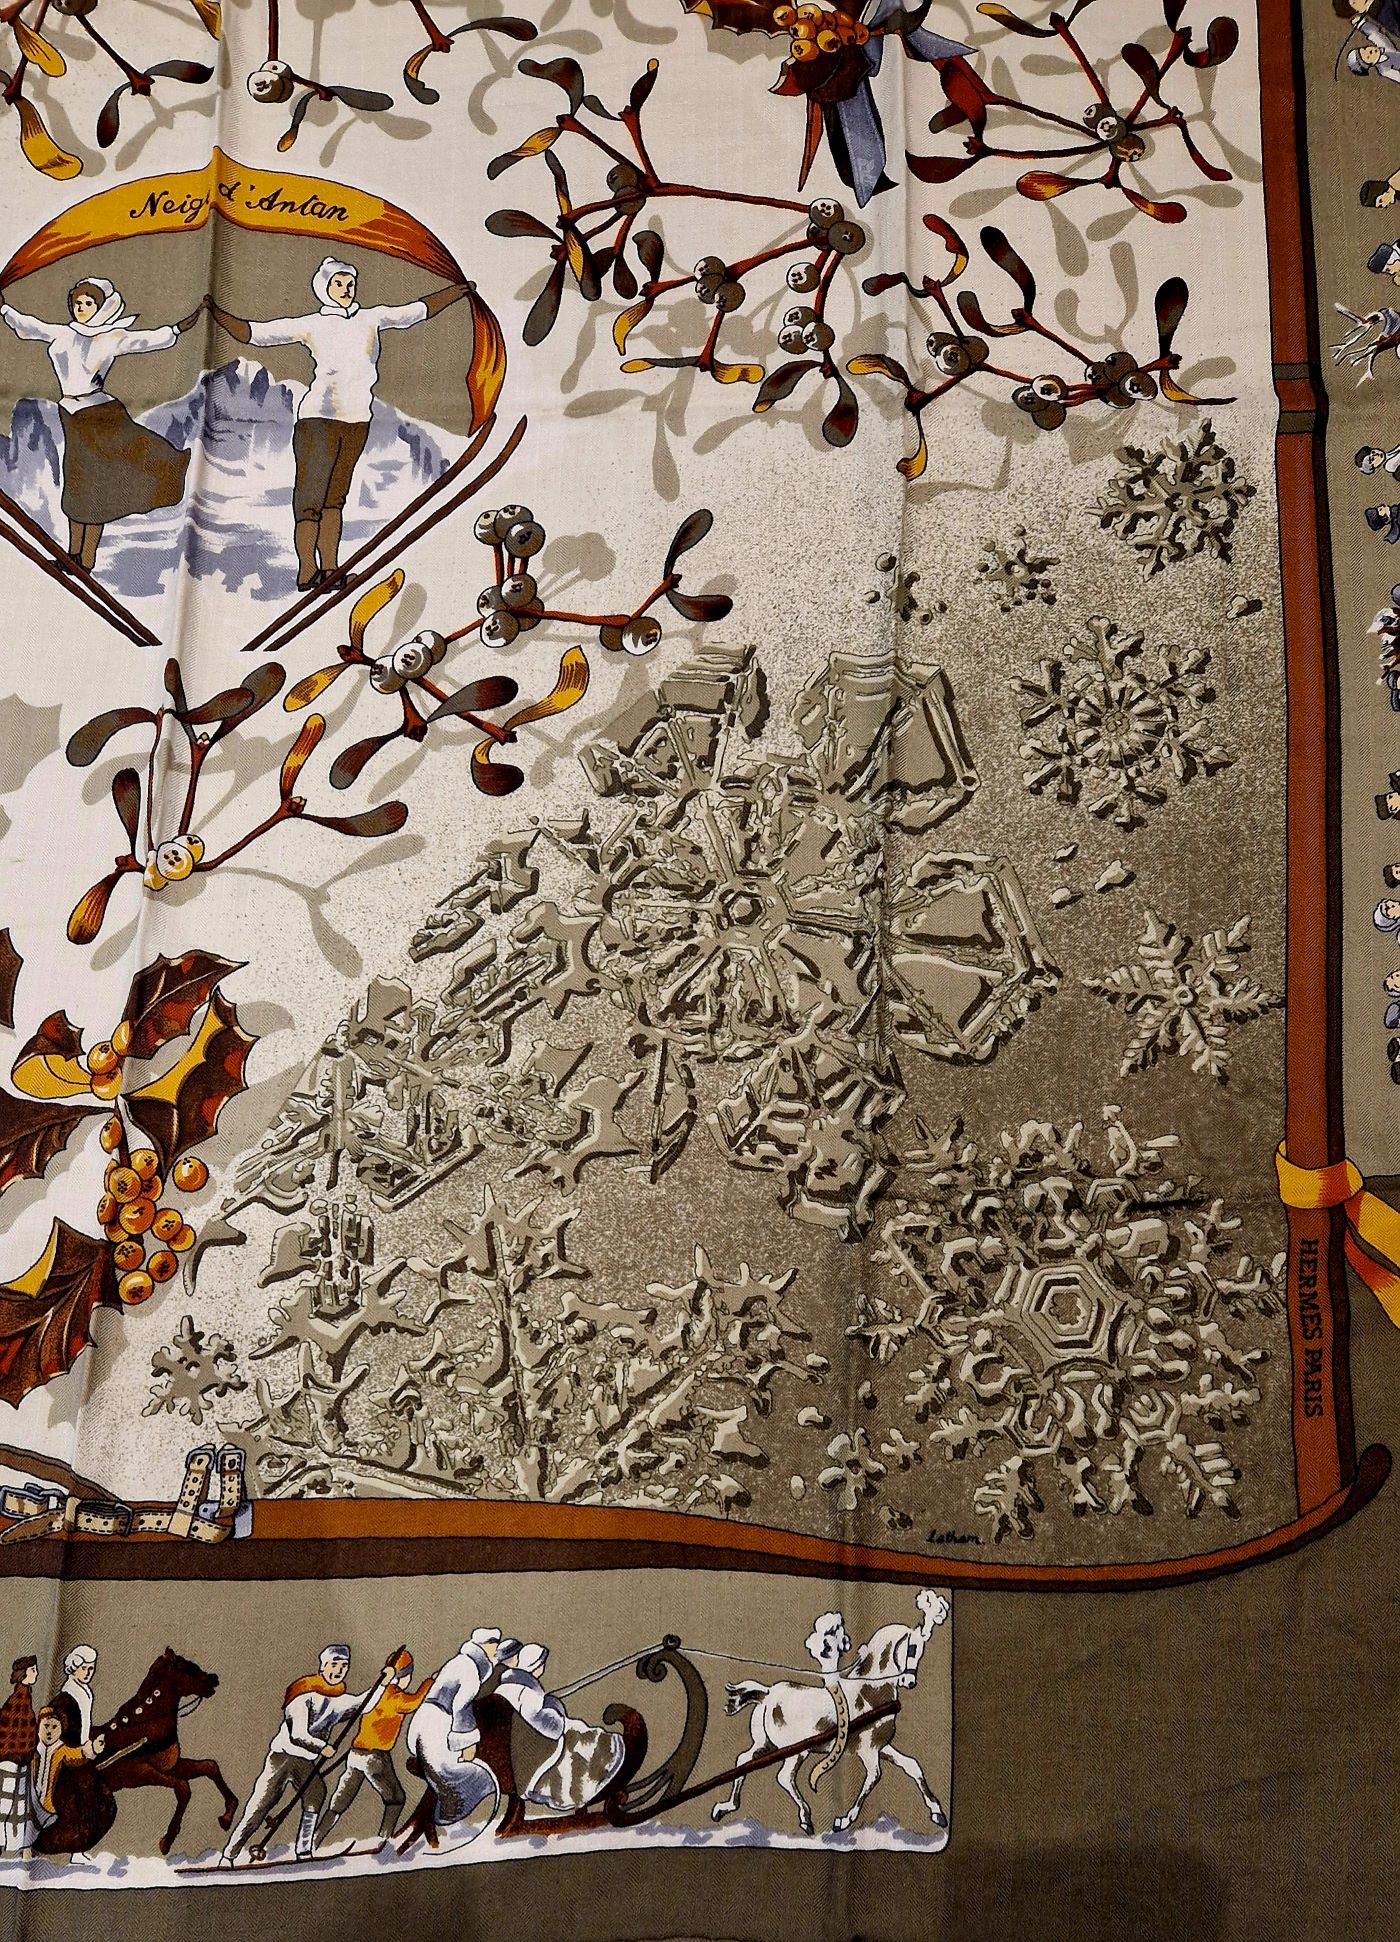 Neig d'Antan
HERMES PARIS
Latham